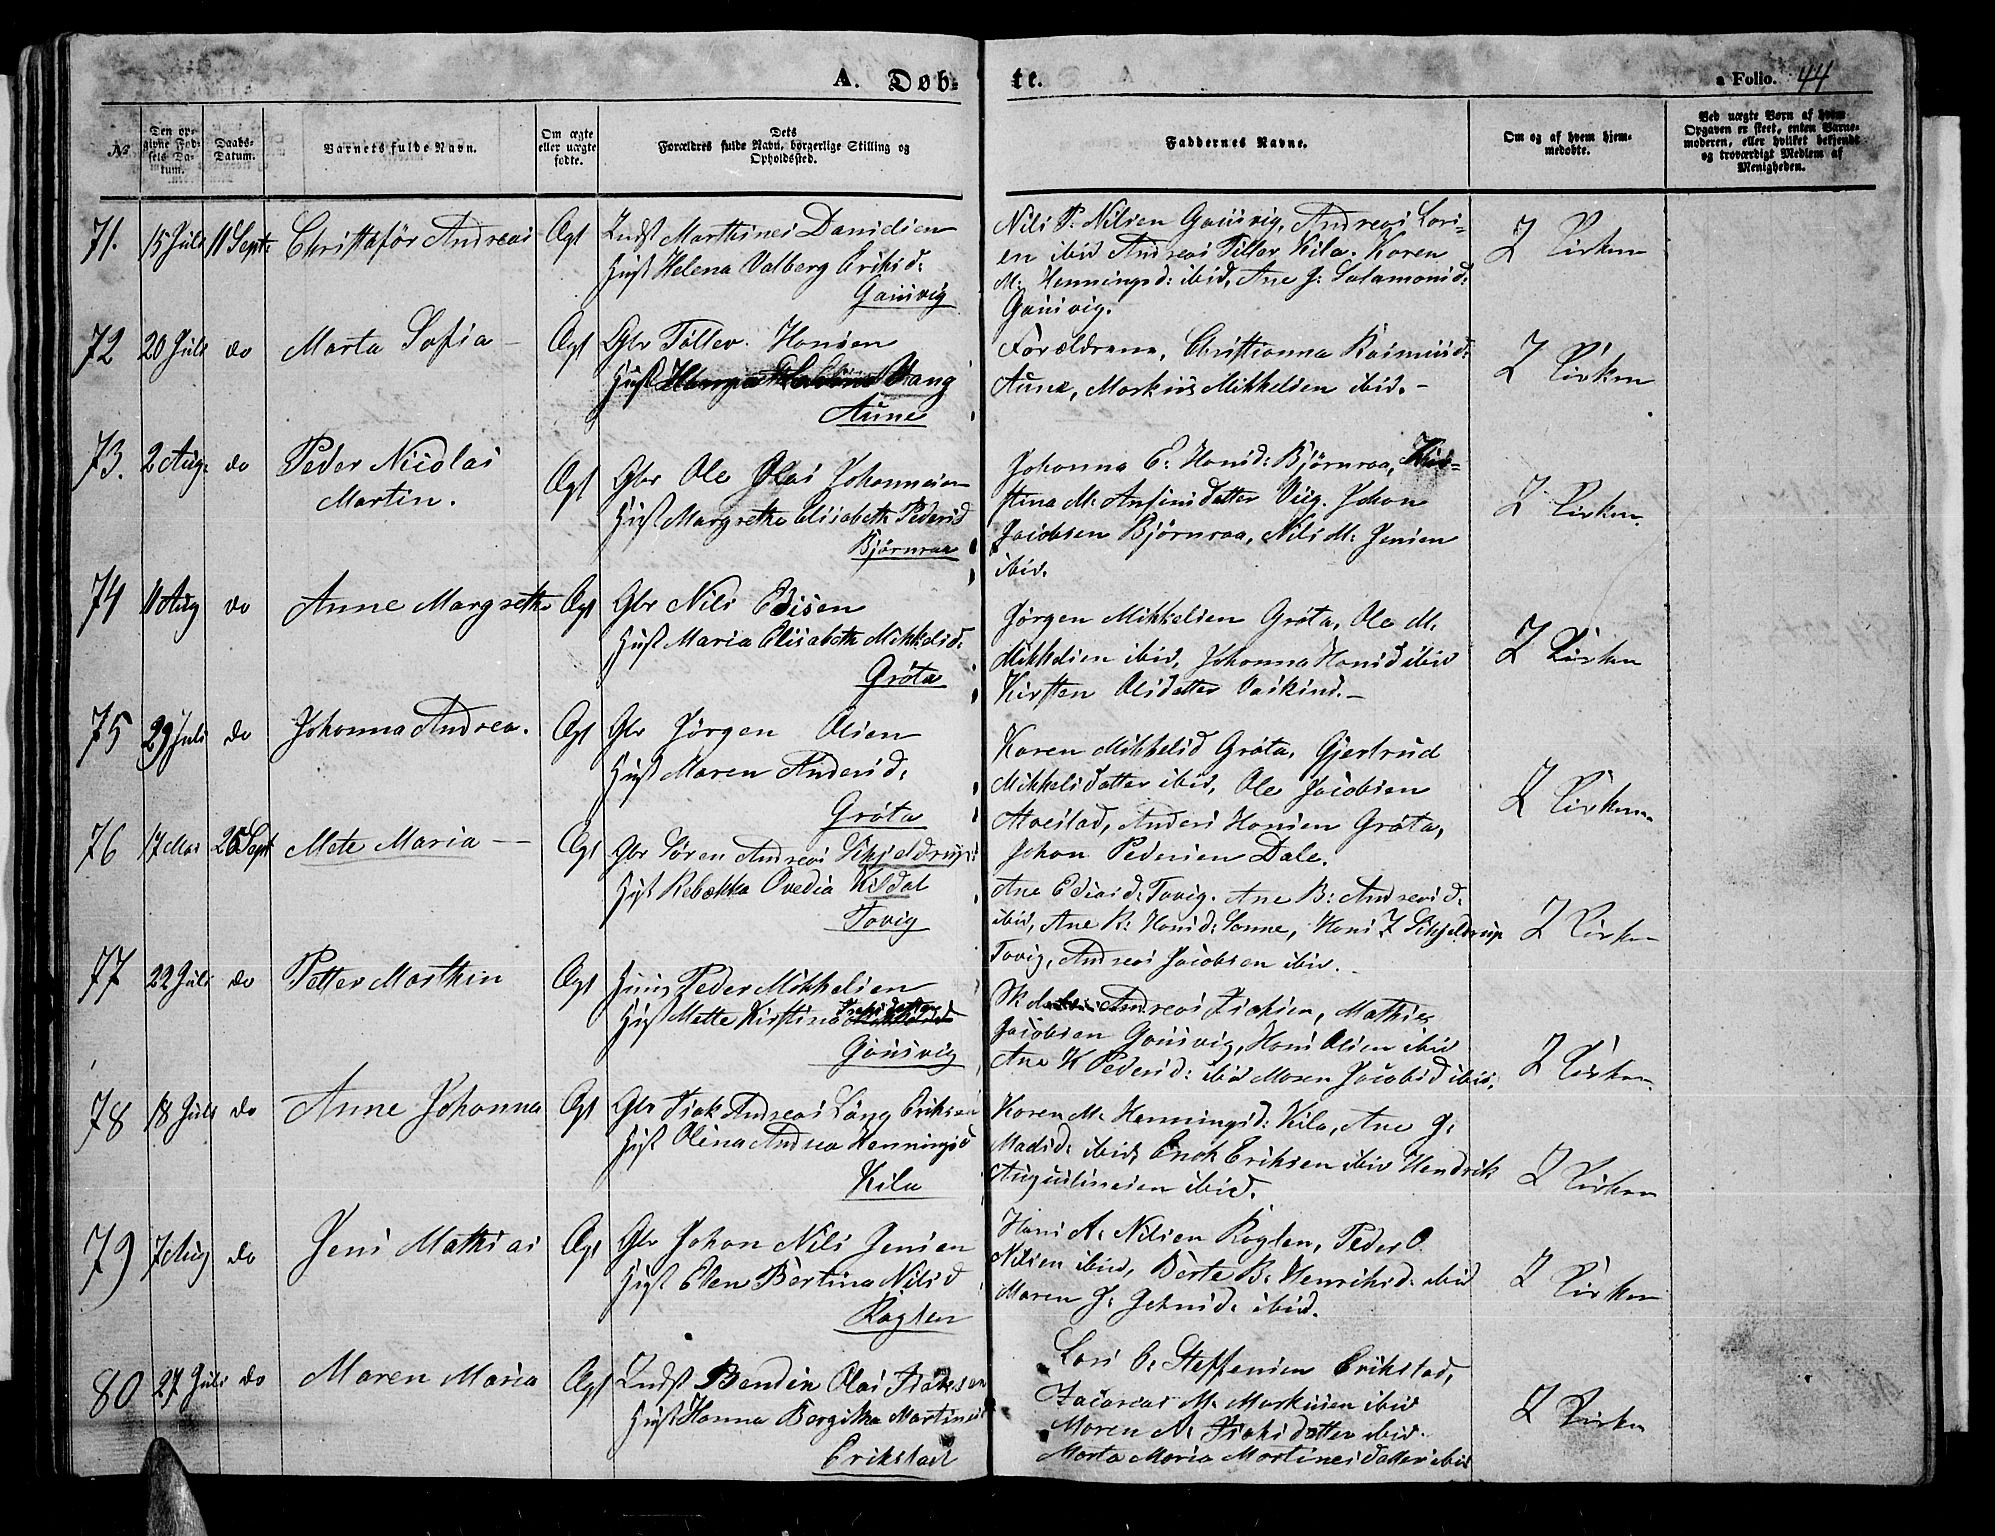 A. Døb-
te.
a Folio. 44
No
Den op-
givne Fød-
sels Da-
tum.
Daabs-
Datum.
Barnets fulde Navn.
Om ægte
eller uægte
fødte.
Dets
Forældres fulde Navn, borgerlige Stilling og
Opholdssted.
Faddernes Navne.
Om og af hvem hjem-
medøbte.
Ved uægte Børn af hvem
Opgaven er skeet, enten Barne-
moderen, eller hvilket bekjendt
og troværdigt Medlem af
Menigheden.
71. 15 Juli 11 Sept. Christafør Andreas Ægt Indst Marthines Danielsen
Hust Helena Valberg Eriksd:
Gausvig
Nils P. Nilsen Gausvig, Andreas Lars-
en ibid Andreas Tillar Kila. Karen
M: Henningsd: ibid, Ane J: Salamonsd:
Gausvig.
I Kirken
72 20 Juli do Marta Sofia Ægt Gbr Tollev. Hansen
Hust Vang
Aune
Forældrene, Christianna Rasmusd:
Aune, Markus Mikkelsen ibid.
I Kirken
73. 2 Aug: do Peder Nicolai
Martin.
Ægt Gbr Ole Olai Johannesen
Hust Margrethe Elisabeth Pedersd
Bjørnraa
Johanna E: Hansd: Bjørnraa, Kir-
stina M: Ansinsdatter Vig. Johan
Jacobsen Bjørnraa, Nils M: Jensen
ibid.
I Kirken.
74 11 Aug do Anne Margrethe Ægt Gbr Nils Edisen
Hust Maria Elisabeth Mikkelsd:
Grøta
Jørgen Mikkelsen Grøta, Ole M:
Mikkelsen ibid, Johanna Hansd ibid
Kirsten Olsdatter Vaskind.
I Kirken
75 29 Juli do Johanna Andrea. Ægt Gbr Jørgen Olsen
Hust Maren Andersd:
Grøta
Karen Mikkelsd Grøta, Gjertrud
Mikkelsdatter ibid, Ole Jacobsen
Alvestad, Anders Hansen Grøta,
Johan Pedersen Dale.
I Kirken
76 17 Mai 26 Sept Mete Maria Ægt Gbr Søren Andreas Schjeldrup
Hust Rebekka Ovedia Kildal
Tovig
Ane Ediasd: Tovig. Ane B: Andreasd:
ibid, Ane R: Hansd: Sanne, Hans J Schjeldrup
Tovig, Andreas Jacobsen ibid.
I Kirken
77 22 Juli do Petter Marthin Ægt Peder Mikkelsen
Hust Mette Kirstina
Gausvig
Andreas Isaksen, Mathis
Jacobsen Gausvig, Hans Olsen ibid
Ane K Pedersd: ibid Maren Jacobsd ibid.
I Kirken
78 18 Juli do Anne Johanna Ægt Gbr Isak Andreas Lång Eriksen
Hust Olina Andrea Henningsd
Kila
Karen M. Henningsd: Kila, Ane J:
Madsd: ibid, Enok Eriksen ibid Hendrik
Augustinusen ibid.
I Kirken
79 7 Aug do Jens Mathias Ægt Gbr Johan Nils Jensen
Hust Elen Bertina Nilsd
Roglen
Hans A. Nilsen Roglen, Peder O.
Nilsen ibid, Berte B: Henriksd: ibid
Maren J: Jensd: ibid.
I Kirken
80 27 Juli do Maren Maria Ægt Indst Bendin Olai Isaksen
Hust Hanna Bergitha Martinsd
Erikstad
Lars C: Steffensen Erikstad,
Zacarias M. Markusen ibid
Maren A: Isaksdatter ibid.
Marta Maria Martinesdatter ibid
I Kirken